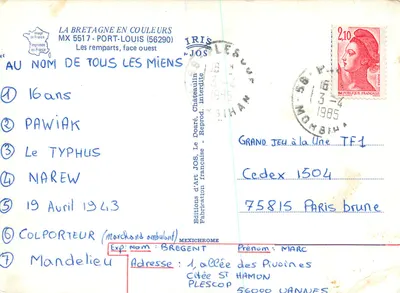 LA BRETAGNE EN COULEURS
MX 5517 - PORT-LOUIS (56290)
Les remparts, face ouest
IRIS
JOS
"AU NOM DE TOUS LES MIENS"
① 16 ans
② PAWIAK
③ Le TYPHUS
④ NAREW
⑤ 19 Avril 1943
⑥ COLPORTEUR (marchand ambulant)
⑦ Mandelieu
Editions d'Art JOS, Le Doaré, Châteaulin
Fabrication française - Reprod. interdite
MEXICHROME
PLESCOP
MORBIHAN
2,10
56
16
3-4
1985
MORBIHAN
GRAND JEU à la Une TF1
Cedex 1504
75815 Paris brune
Exp: Nom: BREGENT Prénom: MARC
Adresse: 1, allée des Pivoines
Citée St HAMON
PLESCOP
56000 VANNES